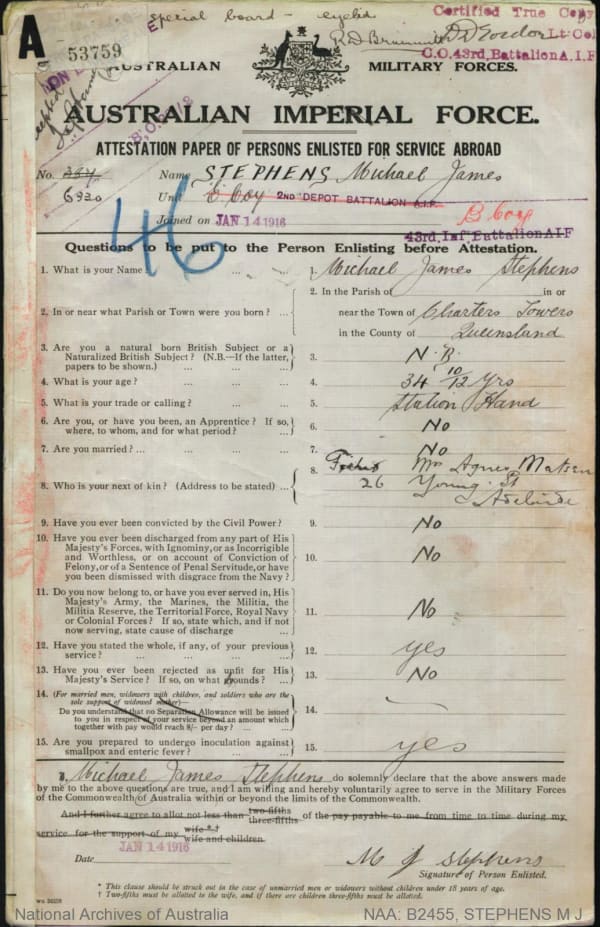 special board - eyelid
Certified True Copy
Lt: Col
C.O. 43rd, Battalion A.I.F
A
53759
AUSTRALIAN MILITARY FORCES.
AUSTRALIAN IMPERIAL FORCE.
ATTESTATION PAPER OF PERSONS ENLISTED FOR SERVICE ABROAD
No. Name STEPHENS Michael James
6320 Unit E Coy 2ND DEPOT BATTALION A.I.F. B Coy
Joined on JAN 14 1916 43rd, Inf. Battalion AIF
46
Questions to be put to the Person Enlisting before Attestation.
1. What is your Name? ... ... 1. Michael James Stephens
2. In or near what Parish or Town were you born? ... 2. In the Parish of in or
near the Town of Charters Towers
in the County of Queensland
3. Are you a natural born British Subject or a
Naturalized British Subject? (N.B.—If the latter,
papers to be shown.) ... ... ... 3. N.B.
4. What is your age? ... ... ... 4. 34 10/12 Yrs
5. What is your trade or calling? ... ... 5. Station Hand
6. Are you, or have you been, an Apprentice? If so,
where, to whom, and for what period? ... ... 6. No
7. Are you married? ... ... ... ... 7. No
8. Who is your next of kin? (Address to be stated) ... 8. Mrs Agnes
26 Young St
Adelaide
9. Have you ever been convicted by the Civil Power? 9. No
10. Have you ever been discharged from any part of His
Majesty's Forces, with Ignominy, or as Incorrigible
and Worthless, or on account of Conviction of
Felony, or of a Sentence of Penal Servitude, or have
you been dismissed with disgrace from the Navy? 10. No
11. Do you now belong to, or have you ever served in, His
Majesty's Army, the Marines, the Militia, the
Militia Reserve, the Territorial Force, Royal Navy
or Colonial Forces? If so, state which, and if not
now serving, state cause of discharge ... 11. No
12. Have you stated the whole, if any, of your previous
service? ... ... ... ... 12. yes
13. Have you ever been rejected as unfit for His
Majesty's Service? If so, on what grounds? ... 13. No
14. (For married men, widowers with children, and soldiers who are the
sole support of widowed mother)—
Do you understand that no Separation Allowance will be issued
to you in respect of your service beyond an amount which
together with pay would reach 8/- per day? ... ... 14.
15. Are you prepared to undergo inoculation against
smallpox and enteric fever? ... ... 15. yes
I, Michael James Stephens do solemnly declare that the above answers made
by me to the above questions are true, and I am willing and hereby voluntarily agree to serve in the Military Forces
of the Commonwealth of Australia within or beyond the limits of the Commonwealth.
And I further agree to allot not less than two-fifths three-fifths of the pay payable to me from time to time during my
service for the support of my wife *† wife and children.
JAN 14 1916
Date M J Stephens
Signature of Person Enlisted.
* This clause should be struck out in the case of unmarried men or widowers without children under 18 years of age.
† Two-fifths must be allotted to the wife, and if there are children three-fifths must be allotted.
National Archives of Australia NAA: B2455, STEPHENS M J